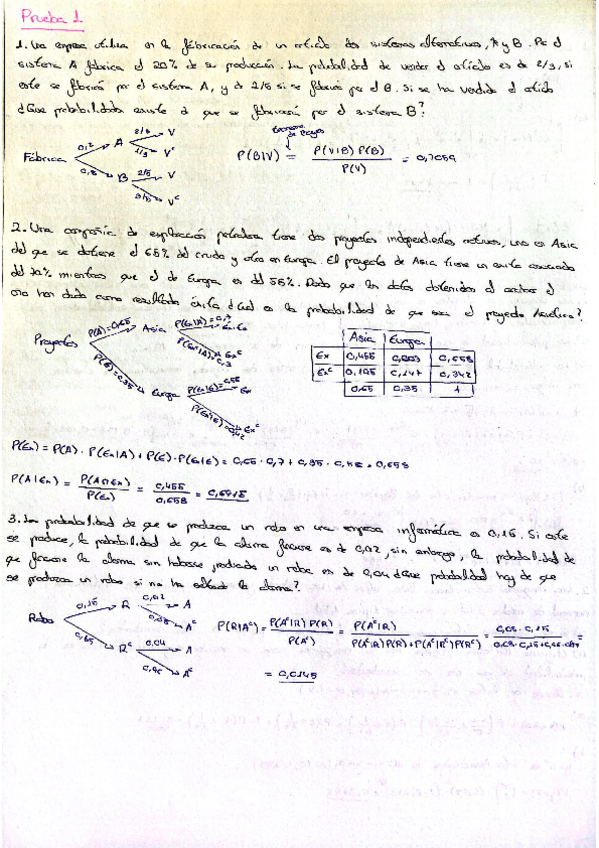 Prueba 1.
1. Una empresa utiliza en la fabricación de un artículo dos sistemas alternativos, A y B. Por el
sistema A fabrica el 20% de su producción. La probabilidad de vender el artículo es de 2/3, si
este se fabricó por el sistema A, y de 2/5 si se fabricó por el B. Si se ha vendido el artículo
¿Qué probabilidad existe de que se fabricara por el sistema B?
Fábrica 0,2 A 2/3 V
1/3 Vᶜ
0,8 B 2/5 V
3/5 Vᶜ
Teorema de Bayes
P(B|V) = P(V|B) P(B) / P(V) = 0,7059
2. Una compañía de exploración petrolera tiene dos proyectos independientes activos, uno en Asia
del que se obtiene el 65% del crudo y otro en Europa. El proyecto de Asia tiene un éxito
del 70% mientras que el de Europa es del 58%. Dado que los datos obtenidos al
han dado como resultado éxito ¿Cuál es la probabilidad de que sea el proyecto Asiático?
Proyectos P(A)=0,65 Asia P(Ex|A)=0,7 Ex
P(Exᶜ|A)=0,3 Exᶜ
P(E)=0,35 Europa P(Ex|E)=0,58 Ex
P(Exᶜ|E)=0,42 Exᶜ
Asia Europa
Ex 0,455 0,203 0,658
Exᶜ 0,195 0,147 0,342
0,65 0,35 1
P(Ex) = P(A) · P(Ex|A) + P(E) · P(Ex|E) = 0,65 · 0,7 + 0,35 · = 0,658
P(A|Ex) = P(A∩Ex) / P(Ex) = 0,455 / 0,658 = 0,6915
3. La probabilidad de que se produzca un robo en una empresa informática es 0,15. Si este
se produce, la probabilidad de que la alarma funcione es de 0,02, sin embargo, la probabilidad de
que funcione la alarma sin haberse producido un robo es de 0,04 ¿Qué probabilidad hay de que
se produzca un robo si no ha la alarma?
Robo 0,15 R 0,02 A
Aᶜ
Rᶜ 0,04 A
0,96 Aᶜ
P(R|Aᶜ) = P(Aᶜ|R) P(R) / P(Aᶜ) = P(Aᶜ|R) / P(Aᶜ|R) P(R) + P(Aᶜ|Rᶜ) P(Rᶜ) =
= 0,0145